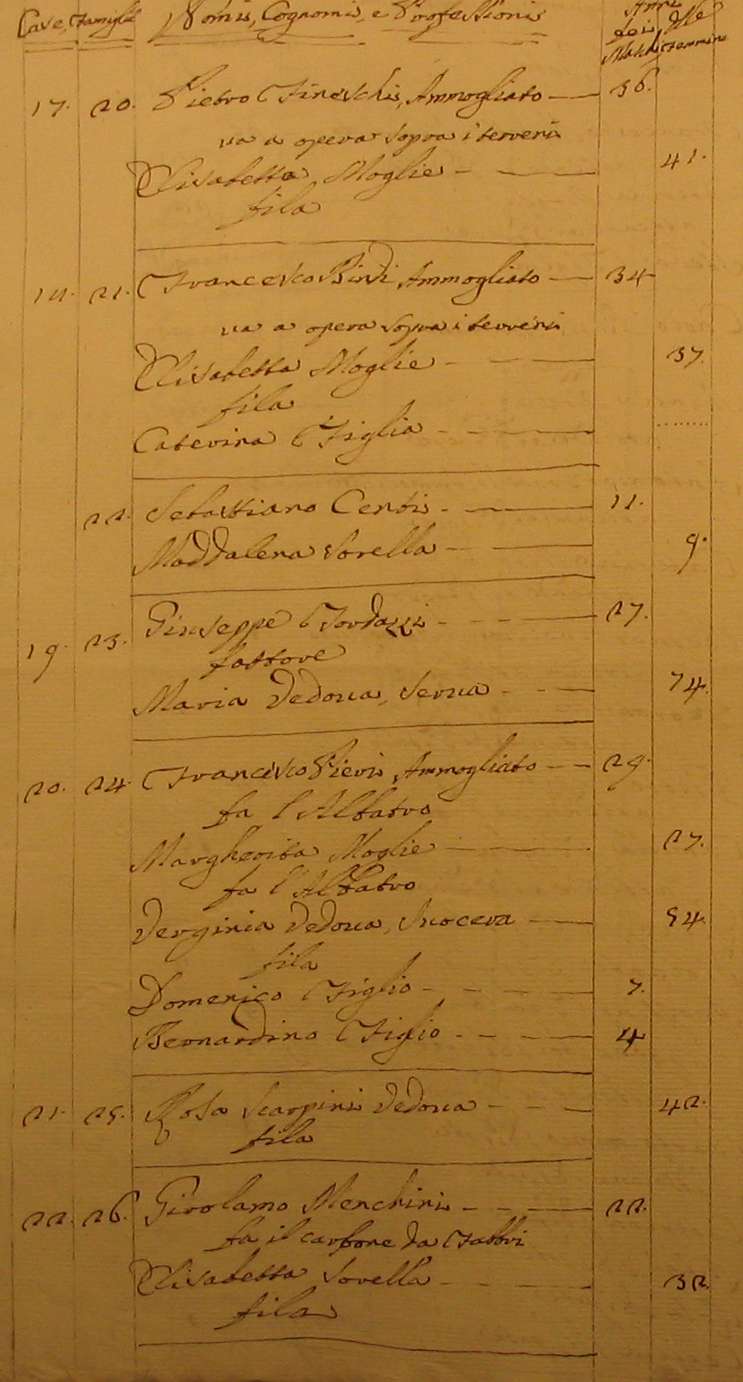 Case, Famiglie Nomi, Cognomi, e Professioni Anni
dei Maschi, delle Femmine
17. 20. Pietro Fineschi, Ammogliato — 36.
va a opera sopra i terreni
Elisabetta Moglie - — — 41.
fila
18. 21. Francesco Bindi Ammogliato — 34
va a opera sopra i terreni
Elisabetta Moglie - — — 37.
fila
Caterina Figlia - — — ........
22. Sebastiano Centi - — — 11.
Maddalena Sorella - — 9.
19. 23. Giuseppe — 27.
fattore
Maria Vedova, Serva - — — 74.
20. 24. Francesco Pieri Ammogliato — 29.
fa l'Albatro
Margherita Moglie - — 27.
fa l'Albatro
Verginia Vedova, Suocera — 54.
fila
Domenico Figlio - — — 7.
Bernardino Figlio - — — 4
21. 25. Rosa Scarpini Vedova - — 42.
fila
22. 26. Girolamo Menchini - — — 22.
fa il carbone da Fabbri
Elisabetta Sorella - — — 32.
fila